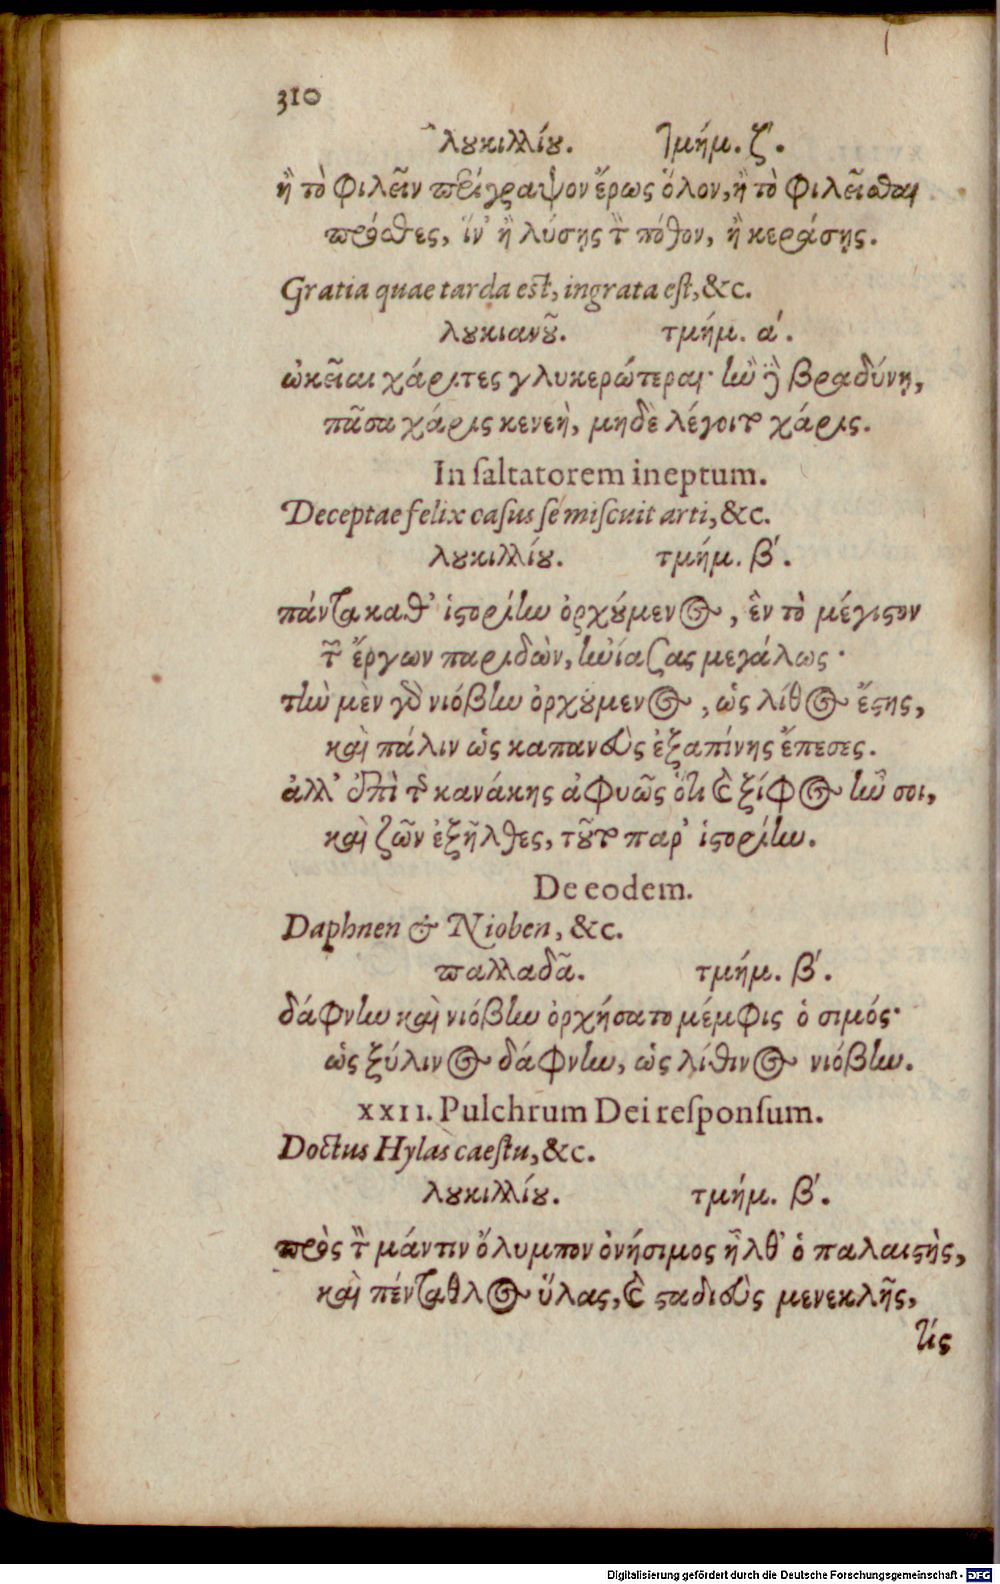 310
λουκιλλίου. τμήμ. ζʹ.
ἢ τὸ φιλεῖν περίγραψον ἔρως ὅλον, ἢ τὸ φιλεῖσθαι
πρόσθες, ἵν' ἢ λύσῃς τὸν πόθον, ἢ κεράσῃς.
Gratia quae tarda est, ingrata est, &c.
λουκιανοῦ. τμήμ. αʹ.
ὠκεῖαι χάριτες γλυκερώτεραι· ἢν δὲ βραδύνῃ,
πᾶσα χάρις κενεὴ, μηδὲ λέγοιτο χάρις.
In saltatorem ineptum.
Deceptae felix casus se miscuit arti, &c.
λουκιλλίου. τμήμ. βʹ.
πάντα καθ' ἱστορίην ὀρχούμενος, ἓν τὸ μέγιστον
τῶν ἔργων παριδὼν, ἠνίασας μεγάλως·
τὴν μὲν γὰρ νιόβην ὀρχούμενος, ὡς λίθος ἔστης,
καὶ πάλιν ὡς καπανεὺς ἐξαπίνης ἔπεσες.
ἀλλ' ἐπὶ τῆς κανάκης ἀφυῶς ὅτι καὶ ξίφος ἦν σοι,
καὶ ζῶν ἐξῆλθες, τοῦτο παρ' ἱστορίην.
De eodem.
Daphnen & Nioben, &c.
παλλαδᾶ. τμήμ. βʹ.
δάφνην καὶ νιόβην ὀρχήσατο μέμφις ὁ σιμός·
ὡς ξύλινος δάφνην, ὡς λίθινος νιόβην.
XXII. Pulchrum Dei responsum.
Doctus Hylas caestu, &c.
λουκιλλίου. τμήμ. βʹ.
πρὸς τὸν μάντιν ὄλυμπον ὀνήσιμος ἦλθ' ὁ παλαιστὴς,
καὶ πένταθλος ὕλας, καὶ σταδιεὺς μενεκλῆς,
τίς
Digitalisierung gefördert durch die Deutsche Forschungsgemeinschaft - DFG